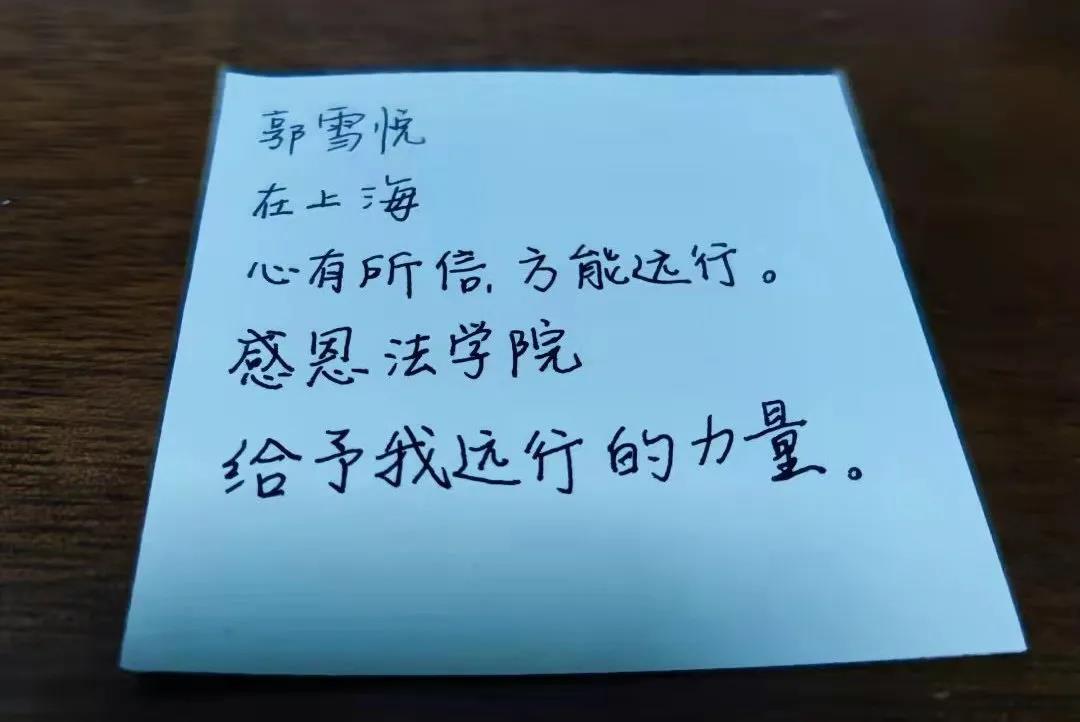 郭雪悦
在上海
心有所信,方能远行。
感恩法学院
给予我远行的力量。